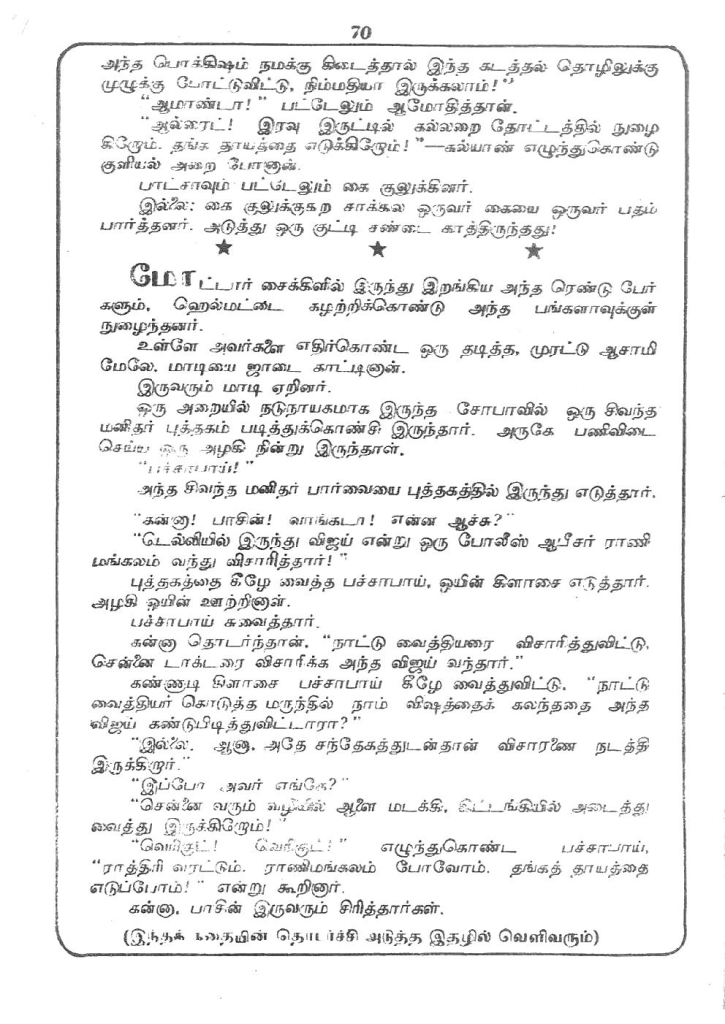 70
அந்த பொக்கிஷம் நமக்கு கிடைத்தால் இந்த கடத்தல் தொழிலுக்கு
முழுக்கு போட்டுவிட்டு, நிம்மதியா இருக்கலாம்!"
"ஆமாண்டா!" பட்டேலும் ஆமோதித்தான்.
"ஆல்ரைட்! இரவு இருட்டில் கல்லறை தோட்டத்தில் நுழை
கிறோம். தங்க தாயத்தை எடுக்கிறோம்!"—கல்யாண் எழுந்துகொண்டு
குளியல் அறை போனான்.
பாட்சாவும் பட்டேலும் கை குலுக்கினர்.
இல்லை: கை குலுக்குகிற சாக்கில் ஒருவர் கையை ஒருவர் பதம்
பார்த்தனர். அடுத்து ஒரு குட்டி சண்டை காத்திருந்தது!
★ ★ ★
மோட்டார் சைக்கிளில் இருந்து இறங்கிய அந்த ரெண்டு பேர்
களும், ஹெல்மட்டை கழற்றிக்கொண்டு அந்த பங்களாவுக்குள்
நுழைந்தனர்.
உள்ளே அவர்களை எதிர்கொண்ட ஒரு தடித்த, முரட்டு ஆசாமி
மேலே, மாடியை ஜாடை காட்டினான்.
இருவரும் மாடி ஏறினர்.
ஒரு அறையில் நடுநாயகமாக இருந்த சோபாவில் ஒரு சிவந்த
மனிதர் புத்தகம் படித்துக்கொண்டு இருந்தார். அருகே பணிவிடை
செய்ய ஒரு அழகி நின்று இருந்தாள்.
"பச்சாபாய்!"
அந்த சிவந்த மனிதர் பார்வையை புத்தகத்தில் இருந்து எடுத்தார்.
"கன்னா! பாசின்! வாங்கடா! என்ன ஆச்சு?"
"டெல்லியில் இருந்து விஜய் என்று ஒரு போலீஸ் ஆபீசர் ராணி
மங்கலம் வந்து விசாரித்தார்!"
புத்தகத்தை கீழே வைத்த பச்சாபாய், ஒயின் கிளாசை எடுத்தார்.
அழகி ஒயின் ஊற்றினாள்.
பச்சாபாய் சுவைத்தார்.
கன்னா தொடர்ந்தான். "நாட்டு வைத்தியரை விசாரித்துவிட்டு,
சென்னை டாக்டரை விசாரிக்க அந்த விஜய் வந்தார்."
கண்ணாடி கிளாசை பச்சாபாய் கீழே வைத்துவிட்டு, "நாட்டு
வைத்தியர் கொடுத்த மருந்தில் நாம் விஷத்தைக் கலந்ததை அந்த
விஜய் கண்டுபிடித்துவிட்டாரா?"
"இல்லை. ஆனா, அதே சந்தேகத்துடன்தான் விசாரணை நடத்தி
இருக்கிறார்."
"இப்போ அவர் எங்கே?"
"சென்னை வரும் வழியில் ஆளை மடக்கி, கிட்டங்கியில் அடைத்து
வைத்து இருக்கிறோம்!"
"வெரிகுட்! வெரிகுட்!" எழுந்துகொண்ட பச்சாபாய்,
"ராத்திரி வரட்டும். ராணிமங்கலம் போவோம். தங்கத் தாயத்தை
எடுப்போம்!" என்று கூறினார்.
கன்னா, பாசின் இருவரும் சிரித்தார்கள்.
(இந்தக் கதையின் தொடர்ச்சி அடுத்த இதழில் வெளிவரும்)